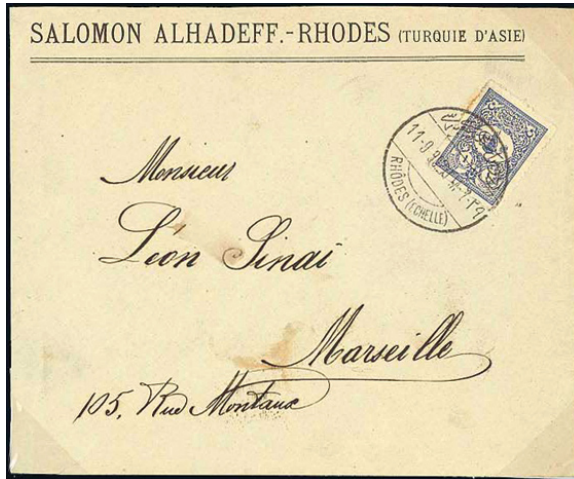 SALOMON ALHADEFF.-RHODES (TURQUIE D'ASIE)
RHÔDES (ECHELLE)
Monsieur
Léon Sinai
Marseille
105, Rue Montaux